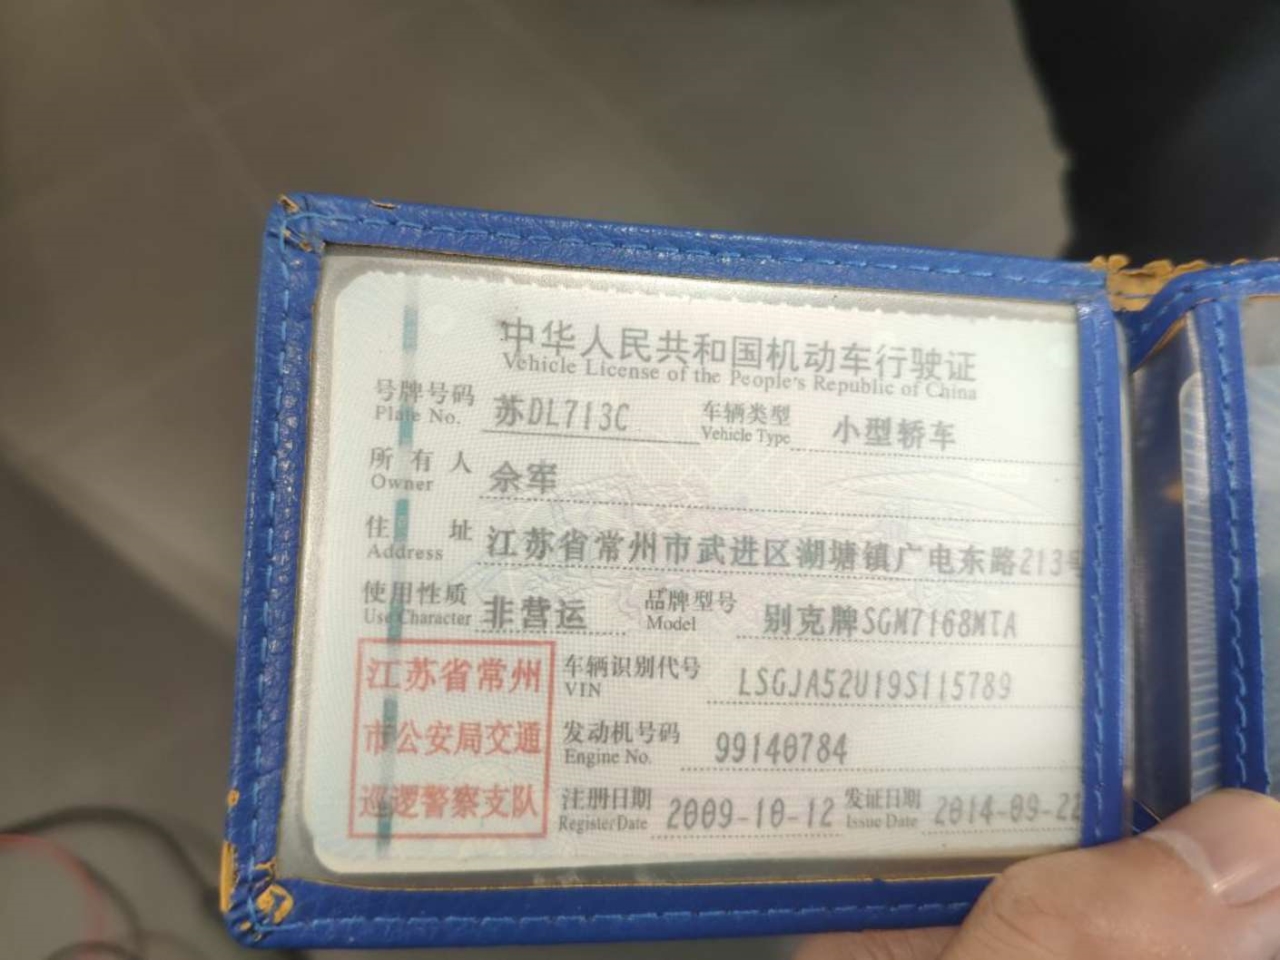 中华人民共和国机动车行驶证
Vehicle License of the People's Republic of China
号牌号码 苏DL713C 车辆类型 小型轿车
Plate No. Vehicle Type
所有人 佘军
Owner
住址 江苏省常州市武进区湖塘镇广电东路213号
Address
使用性质 非营运 品牌型号 别克牌SGM7168MTA
Use Character Model
江苏省常州
市公安局交通
巡逻警察支队
车辆识别代号 LSGJA52U19S115789
VIN
发动机号码 99140784
Engine No.
注册日期 2009-10-12 发证日期 2014-09-22
Register Date Issue Date